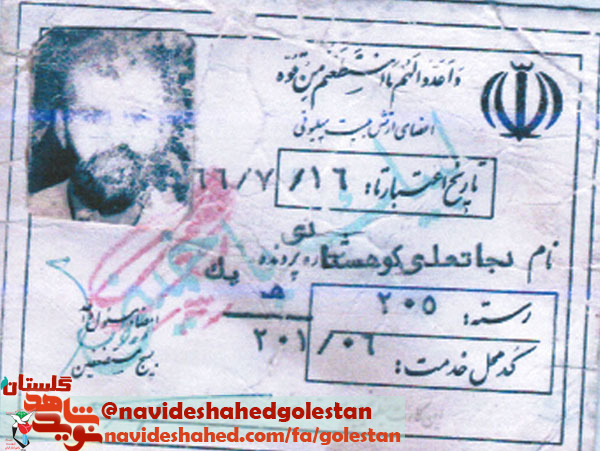 وَاَعِدّوالَهُم مَااستَطَعتُم مِن قُوّه
اعضای ارتش بیست میلیونی
تاریخ اعتبار تا: ۶۶/۷/۱۶
نام نجاتعلی کوهستانی شماره پرونده
یک
رسته: ۲۰۵
کد محل خدمت: ۲۰۱/۰۶
امضاء مسئول واحد
بسیج مستضعفین
گلستان
نوید شاهد
@navideshahedgolestan
navideshahed.com/fa/golestan